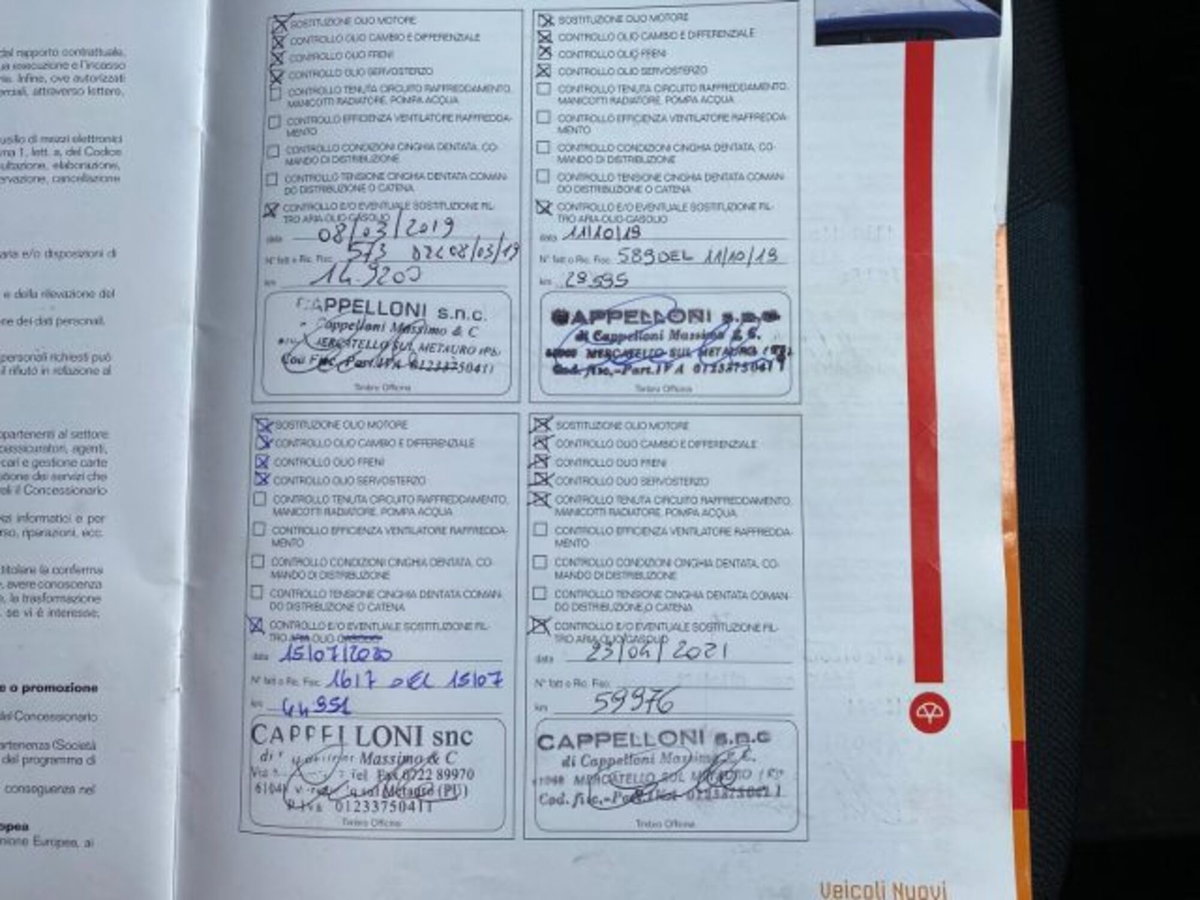 del rapporto contrattuale,
ua esecuzione e l'incasso
e. Infine, ove autorizzati
erciali, attraverso lettere,
usilio di mezzi elettronici
ma 1, lett. a, del Codice
sultazione, elaborazione,
ervazione, cancellazione
aria e/o disposizioni di
e della rilevazione del
one dei dati personali.
personali richiesti può
il rifiuto in relazione al
ppartenenti al settore
oassicuratori, agenti,
cari e gestione carte
stione dei servizi che
ali il Concessionario
izi informatici e per
rso, riparazioni, ecc.
titolare la conferma
, avere conoscenza
e, la trasformazione
se vi è interesse,
e o promozione
del Concessionario
artenenza (Società
del programma di
conseguenza nel
opea
nione Europea, ai
SOSTITUZIONE OLIO MOTORE
CONTROLLO OLIO CAMBIO E DIFFERENZIALE
CONTROLLO OLIO FRENI
CONTROLLO OLIO SERVOSTERZO
CONTROLLO TENUTA CIRCUITO RAFFREDDAMENTO,
MANICOTTI RADIATORE, POMPA ACQUA
CONTROLLO EFFICIENZA VENTILATORE RAFFREDDA-
MENTO
CONTROLLO CONDIZIONI CINGHIA DENTATA, CO-
MANDO DI DISTRIBUZIONE
CONTROLLO TENSIONE CINGHIA DENTATA COMAN-
DO DISTRIBUZIONE O CATENA
CONTROLLO E/O EVENTUALE SOSTITUZIONE FIL-
TRO ARIA-OLIO-GASOLIO
data 08/03/2019
N° fatt o Ric. Fisc. 573 DEL 08/03/19
km 14.9200
CAPPELLONI s.n.c.
Cappelloni Massimo & C
MERCATELLO SUL METAURO
Cod Fisc. Part. IVA 01233750411
Timbro Officina
SOSTITUZIONE OLIO MOTORE
CONTROLLO OLIO CAMBIO E DIFFERENZIALE
CONTROLLO OLIO FRENI
CONTROLLO OLIO SERVOSTERZO
CONTROLLO TENUTA CIRCUITO RAFFREDDAMENTO,
MANICOTTI RADIATORE, POMPA ACQUA
CONTROLLO EFFICIENZA VENTILATORE RAFFREDDA-
MENTO
CONTROLLO CONDIZIONI CINGHIA DENTATA, CO-
MANDO DI DISTRIBUZIONE
CONTROLLO TENSIONE CINGHIA DENTATA COMAN-
DO DISTRIBUZIONE O CATENA
CONTROLLO E/O EVENTUALE SOSTITUZIONE FIL-
TRO ARIA-OLIO-GASOLIO
data 11/10/19
N° fatt o Ric. Fisc. 589 DEL 11/10/19
km 29595
CAPPELLONI s.n.c
di Cappelloni Massimo & C.
MERCATELLO SUL METAURO
Cod. fisc.-Part. IVA 01233750411
Timbro Officina
SOSTITUZIONE OLIO MOTORE
CONTROLLO OLIO CAMBIO E DIFFERENZIALE
CONTROLLO OLIO FRENI
CONTROLLO OLIO SERVOSTERZO
CONTROLLO TENUTA CIRCUITO RAFFREDDAMENTO,
MANICOTTI RADIATORE, POMPA ACQUA
CONTROLLO EFFICIENZA VENTILATORE RAFFREDDA-
MENTO
CONTROLLO CONDIZIONI CINGHIA DENTATA, CO-
MANDO DI DISTRIBUZIONE
CONTROLLO TENSIONE CINGHIA DENTATA COMAN-
DO DISTRIBUZIONE O CATENA
CONTROLLO E/O EVENTUALE SOSTITUZIONE FIL-
TRO ARIA OLIO GASOLIO
data 15/07/2020
N° fatt o Ric. Fisc. 1617 DEL 15/07
km 44951
CAPPELLONI snc
Massimo & C
Tel Fax 0722 89970
sul Metauro (PU)
P. Iva 01233750411
Timbro Officina
SOSTITUZIONE OLIO MOTORE
CONTROLLO OLIO CAMBIO E DIFFERENZIALE
CONTROLLO OLIO FRENI
CONTROLLO OLIO SERVOSTERZO
CONTROLLO TENUTA CIRCUITO RAFFREDDAMENTO,
MANICOTTI RADIATORE, POMPA ACQUA
CONTROLLO EFFICIENZA VENTILATORE RAFFREDDA-
MENTO
CONTROLLO CONDIZIONI CINGHIA DENTATA, CO-
MANDO DI DISTRIBUZIONE
CONTROLLO TENSIONE CINGHIA DENTATA COMAN-
DO DISTRIBUZIONE O CATENA
CONTROLLO E/O EVENTUALE SOSTITUZIONE FIL-
TRO ARIA/OLIO/GASOLIO
data 23/04/2021
N° fatt o Ric. Fisc.
km 59976
CAPPELLONI s.n.c
di Cappelloni Massimo
MERCATELLO SUL METAURO
Cod. fisc.-Part. IVA 01233750411
Timbro Officina
Veicoli Nuovi